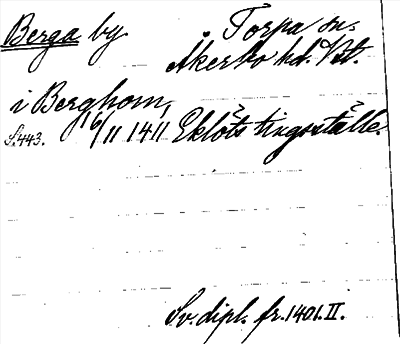 Berga by
Torpa sn.
Åkerbo hd. Vstm.
i Berghom,
S. 443. 16/11 1411 Eklöts tingsställe.
Sv. dipl. fr. 1401. II.